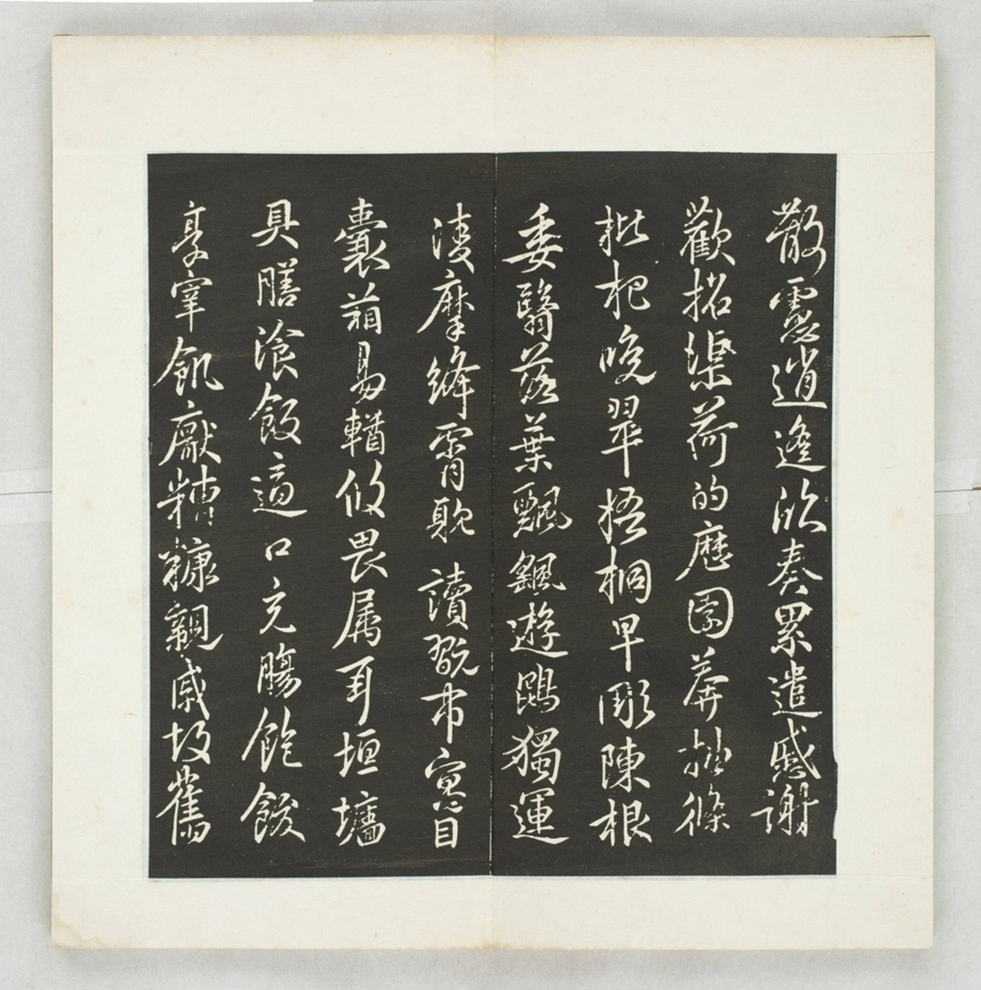 散慮逍遙欣奏累遣慼謝
歡招渠荷的歷園莽抽條
枇杷晚翠梧桐早彫陳根
委翳落葉飄颻遊鵾獨運
凌摩絳霄耽讀翫市寓目
囊箱易輶攸畏属耳垣墻
具膳湌飯適口充腸飽飫
享宰飢厭糟糠親戚故舊